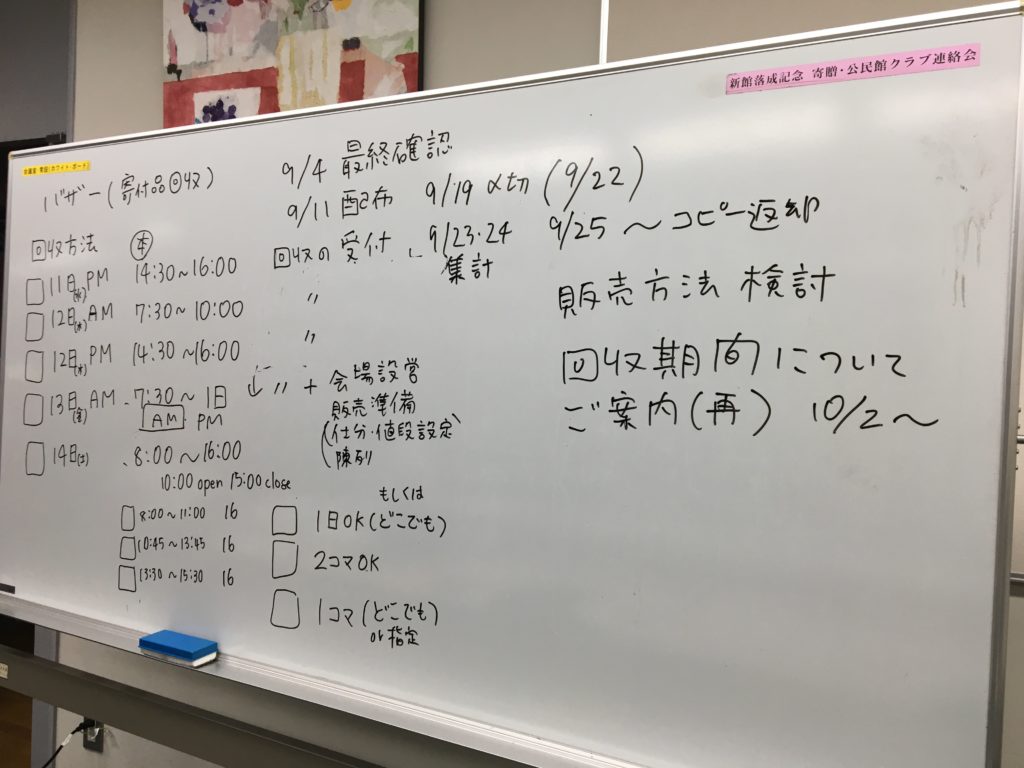 新館落成記念 寄贈・公民館クラブ連絡会
会議室 常設(ホワイト・ボード)
バザー(寄付品回収)
9/4 最終確認
9/11 配布 9/19 〆切 (9/22)
回収方法 (本)
回収の受付 9/23・24 集計
9/25 〜 コピー返却
□ 11日(水) PM 14:30〜16:00 〃
□ 12日(木) AM 7:30〜10:00 〃
□ 12日(木) PM 14:30〜16:00
□ 13日(金) AM 7:30〜1日 ↓ 〃 + 会場設営
AM PM
販売準備
(仕分・値段設定
陳列)
□ 14日(土) 8:00〜16:00
10:00 open 15:00 close
□ 8:00〜11:00 16
□ 10:45〜13:45 16
□ 13:30〜15:30 16
もしくは
□ 1日OK(どこでも)
□ 2コマOK
□ 1コマ(どこでも)
or 指定
販売方法 検討
回収期間について
ご案内(再) 10/2〜